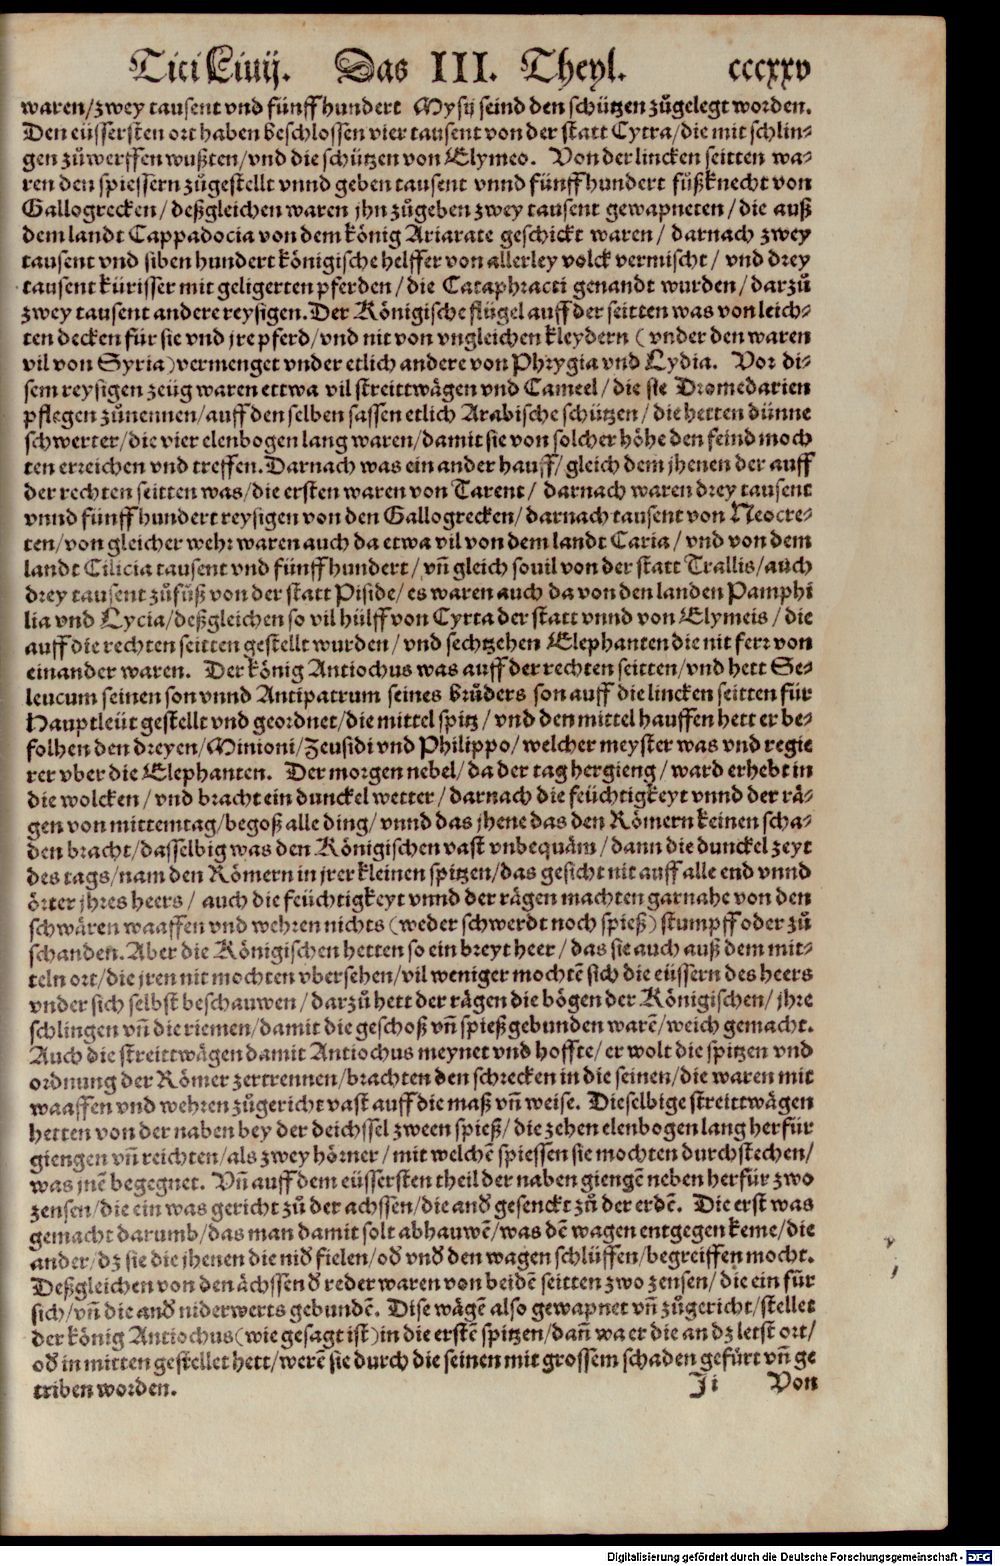 Titi Liuij. Das III. Theyl. cccxxv
waren/zwey tausent vnd fünff hundert Mysij seind den schützen zůgelegt worden.
Den eüssersten ort haben beschlossen vier tausent von der statt Cytra/die mit schlin⸗
gen zůwerffen wußten/vnd die schützen von Elymeo. Von der lincken seitten wa⸗
ren den spiessern zůgestellt vnnd geben tausent vnnd fünffhundert fůßknecht von
Gallogrecken/deßgleichen waren jhn zůgeben zwey tausent gewapneten/die auß
dem landt Cappadocia von dem könig Ariarate geschickt waren/ darnach zwey
tausent vnd siben hundert königische helffer von allerley volck vermischt/ vnd drey
tausent kürisser mit geligerten pferden/die Cataphracti genandt wurden/darzů
zwey tausent andere reysigen. Der Königische flügel auff der seitten was von leich⸗
ten decken für sie vnd jre pferd/vnd nit von vngleichen kleydern (vnder den waren
vil von Syria) vermenget vnder etlich andere von Phrygia vnd Lydia. Vor di⸗
sem reysigen zeüg waren ettwa vil streittwägen vnd Cameel/die sie Dromedarien
pflegen zůnennen/auff den selben sassen etlich Arabische schützen/die hetten dünne
schwerter/die vier elenbogen lang waren/damit sie von solcher höhe den feind moch
ten erreichen vnd treffen. Darnach was ein ander hauff/gleich dem jhenen der auff
der rechten seitten was/die ersten waren von Tarent/ darnach waren drey tausent
vnnd fünff hundert reysigen von den Gallogrecken/darnach tausent von Neocre⸗
ten/von gleicher wehr waren auch da etwa vil von dem landt Caria/vnd von dem
landt Cilicia tausent vnd fünff hundert/vñ gleich souil von der statt Trallis/auch
drey tausent zůfůß von der statt Piside/es waren auch da von den landen Pamphi
lia vnd Lycia/deßgleichen so vil hülff von Cyrta der statt vnnd von Elymeis/die
auff die rechten seitten gestellt wurden/vnd sechtzehen Elephanten die nit ferr von
einander waren. Der könig Antiochus was auff der rechten seitten/vnd hett Se⸗
leucum seinen son vnnd Antipatrum seines brůders son auff die lincken seitten für
Hauptleüt gestellt vnd geordnet/die mittel spitz/vnd den mittel hauffen hett er be⸗
folhen den dreyen/Minioni/Zeusidi vnd Philippo/welcher meyster was vnd regie
rer vber die Elephanten. Der morgen nebel/da der tag hergieng/ward erhebt in
die wolcken/vnd bracht ein dunckel wetter/darnach die feüchtigkeyt vnnd der rä⸗
gen von mittemtag/begoß alle ding/vnnd das jhene das den Römern keinen scha⸗
den bracht/dasselbig was den Königischen vast vnbequäm/dann die dunckel zeyt
des tags/nam den Römern in jrer kleinen spitzen/das gesicht nit auff alle end vnnd
örter jhres heers/ auch die feüchtigkeyt vnnd der rägen machten garnahe von den
schwären waaffen vnd wehren nichts (weder schwerdt noch spieß) stumpff oder zů
schanden. Aber die Königischen hetten so ein breyt heer/das sie auch auß dem mit⸗
teln ort/die jren nit mochten vbersehen/vil weniger mochtẽ sich die eüssern des heers
vnder sich selbst beschauwen/darzů hett der rägen die bögen der Königischen/jhre
schlingen vñ die riemen/damit die geschoß vñ spieß gebunden warẽ/weich gemacht.
Auch die streittwägen damit Antiochus meynet vnd hoffte/er wolt die spitzen vnd
ordnung der Römer zertrennen/brachten den schrecken in die seinen/die waren mit
waaffen vnd wehren zůgericht vast auff die maß vñ weise. Dieselbige streittwägen
hetten von der naben bey der deichssel zween spieß/die zehen elenbogen lang herfür
giengen vñ reichten/als zwey hörner/mit welchẽ spiessen sie mochten durchstechen/
was jnẽ begegnet. Vñ auff dem eüssersten theil der naben giengẽ neben herfür zwo
zensen/die ein was gericht zů der achssen/die and̃ gesenckt zů der erdẽ. Die erst was
gemacht darumb/das man damit solt abhauwẽ/was dẽ wagen entgegen keme/die
ander/dz sie die jhenen die nid̃ fielen/od̃ vnd̃ den wagen schlüffen/begreiffen mocht.
Deßgleichen von den ächssen d̃ reder waren von beidẽ seitten zwo zensen/die ein für
sich/vñ die and̃ niderwerts gebundẽ. Dise wägẽ also gewapnet vñ zůgericht/stellet
der könig Antiochus (wie gesagt ist) in die erstẽ spitzen/dañ wa er die an dz letst ort/
od̃ in mitten gestellet hett/werẽ sie durch die seinen mit grossem schaden gefürt vñ ge
triben worden. Ji Von
Digitalisierung gefördert durch die Deutsche Forschungsgemeinschaft - DFG